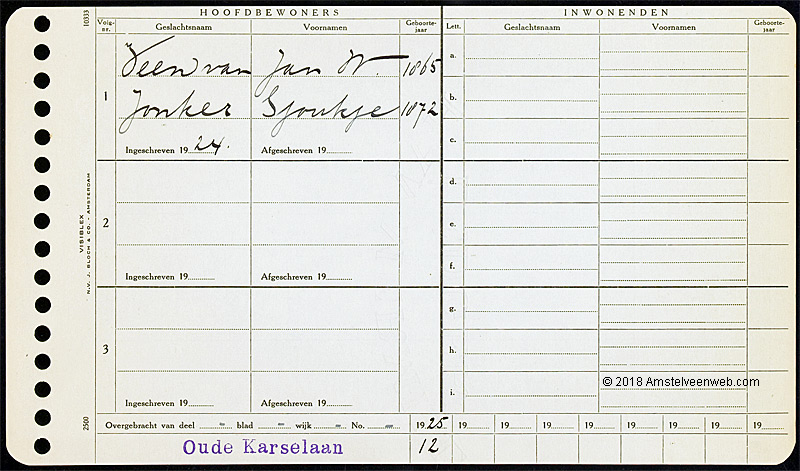 HOOFDBEWONERS INWONENDEN
Volg-nr. Geslachtsnaam Voornamen Geboorte-jaar Lett. Geslachtsnaam Voornamen Geboorte-jaar
10333
1
Veen van Jan W. 1865
Jonker Sjoukje 1872
Ingeschreven 19 24. Afgeschreven 19
a.
b.
c.
2
Ingeschreven 19 Afgeschreven 19
d.
e.
f.
3
Ingeschreven 19 Afgeschreven 19
g.
h.
i.
VISIBLEX
N.V. J. BLOCH & CO. - AMSTERDAM
2500
© 2018 Amstelveenweb.com
Overgebracht van deel - blad - wijk - No. - 19 25 19 19 19 19 19 19 19 19
Oude Karselaan 12